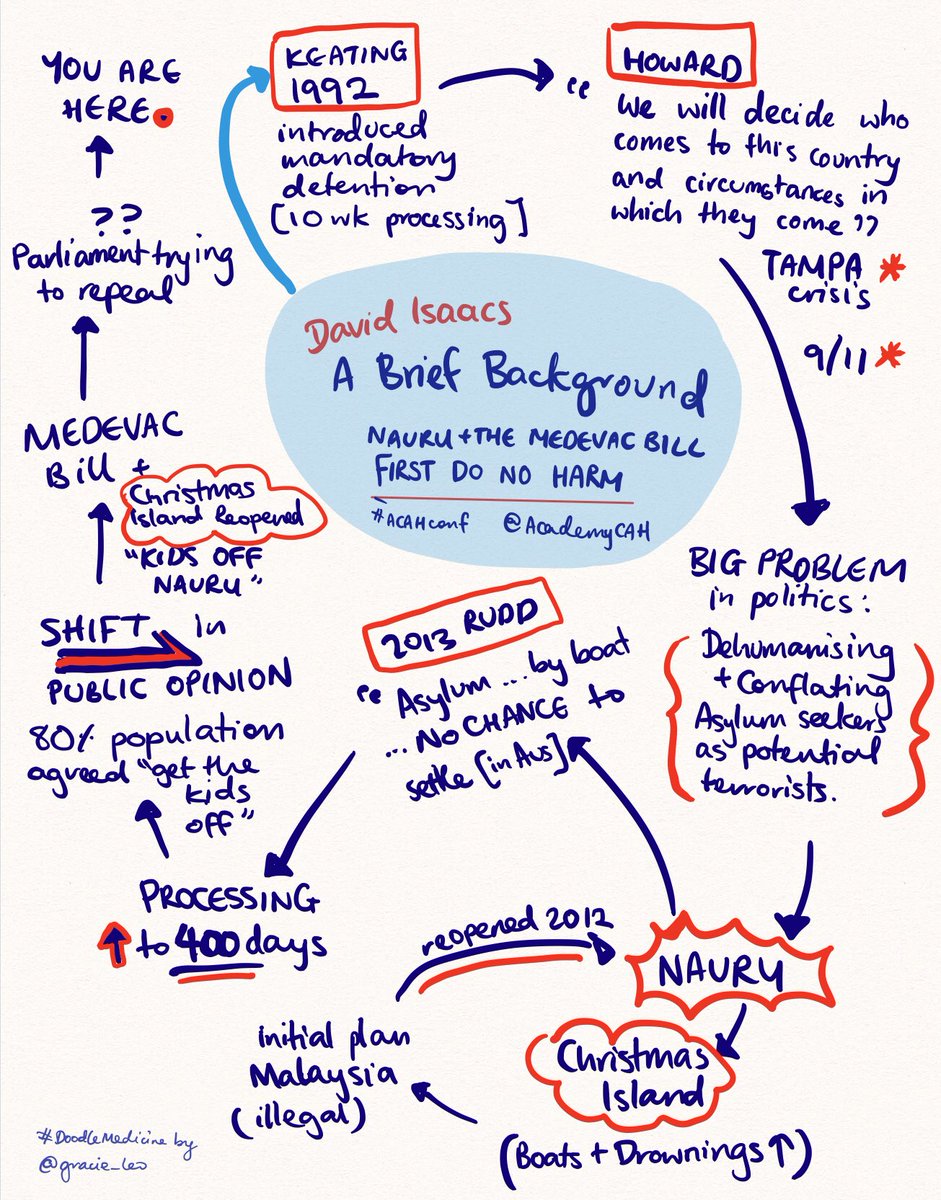 David Isaacs
A Brief Background
NAURU + THE MEDEVAC BILL
FIRST DO NO HARM
#ACAHconf @AcademyCAH
KEATING
1992
introduced
mandatory
detention
[10 wk processing]
HOWARD
"We will decide who
comes to this country
and circumstances in
which they come"
TAMPA *
crisis
9/11 *
BIG PROBLEM
in politics:
{Dehumanising
+ Conflating
Asylum seekers
as potential
terrorists.}
NAURU
Christmas
Island
(Boats + Drownings ↑)
initial plan
Malaysia
(illegal)
reopened 2012
2013 RUDD
"Asylum ... by boat
... NO CHANCE to
settle [in Aus]
PROCESSING
↑ to 400 days
80% population
agreed "get the
kids
off"
SHIFT in
PUBLIC OPINION
"KIDS OFF
NAURU"
MEDEVAC
Bill +
Christmas
Island Reopened
??
Parliament trying
to repeal
YOU ARE
HERE.
#DoodleMedicine by
@gracie_leo